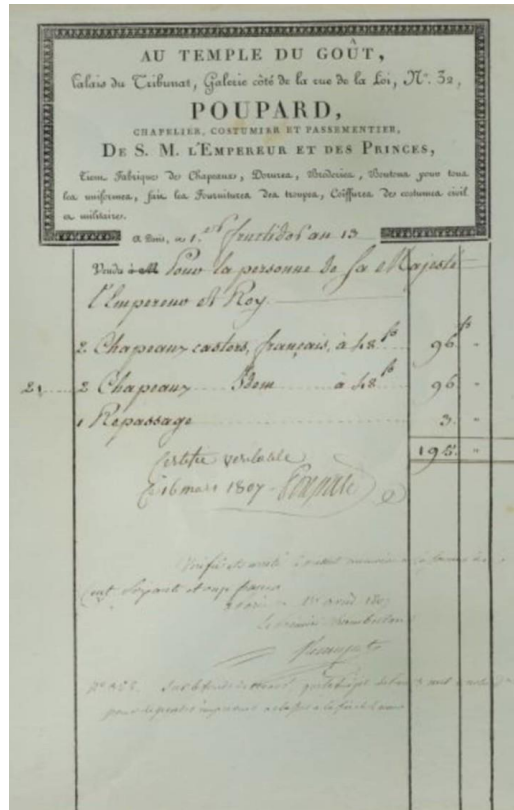 AU TEMPLE DU GOÛT,
Palais du Tribunat, Galerie côté de la rue de la Loi, N°. 32,
POUPARD,
CHAPELIER, COSTUMIER ET PASSEMENTIER,
DE S. M. L'EMPEREUR ET DES PRINCES,
Tient Fabrique de Chapeaux, Dorures, Broderies, Boutons pour tous
les uniformes, fait les Fournitures des troupes, Coiffures de costumes civil
et militaires.
A Paris, ce 1.er fructidor an 13
Vendu à M Pour la personne de Sa Majesté
l'Empereur et Roy.
2 Chapeaux castors, français, à 48 f 96 f "
21 2 Chapeaux Idem à 48 f 96 "
1 Repassage 3. "
195. "
Certifié véritable
Ce 16 mars 1807 Poupard
Vérifié et arrêté
Cent soixante et onze francs
avril 1807
Le premier Chambellan
Remusat